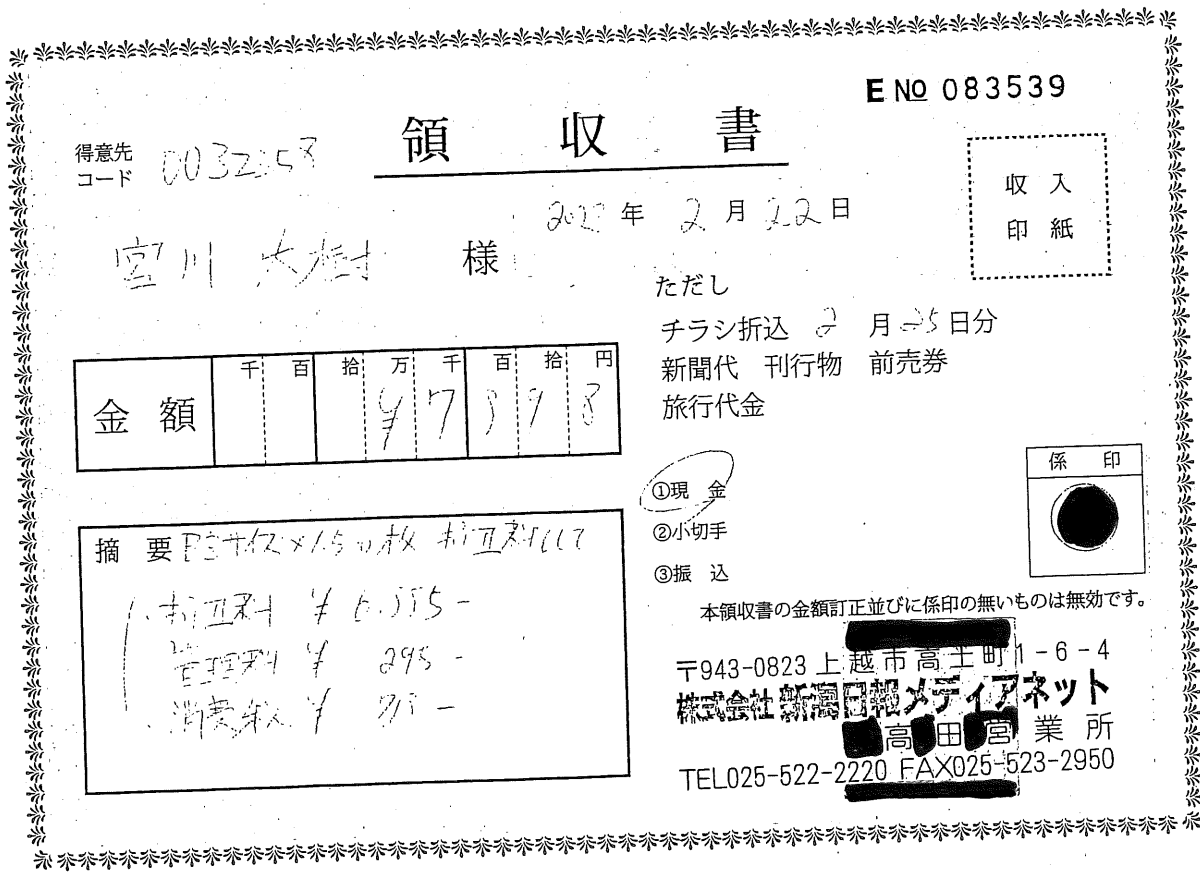 E No 083539
領収書
得意先
コード
収入
印紙
年 2月22日
宮川大樹 様
ただし
チラシ折込 2月25日分
新聞代 刊行物 前売券
旅行代金
千 百 拾 万 千 百 拾 円
金額
①現 金
②小切手
③振 込
係 印
摘 要
折込料 ¥
管理料 ¥ 295-
消費税 ¥
本領収書の金額訂正並びに係印の無いものは無効です。
〒943-0823 上越市高土町1-6-4
株式会社 新潟日報メディアネット
高田営業所
TEL025-522-2220 FAX025-523-2950